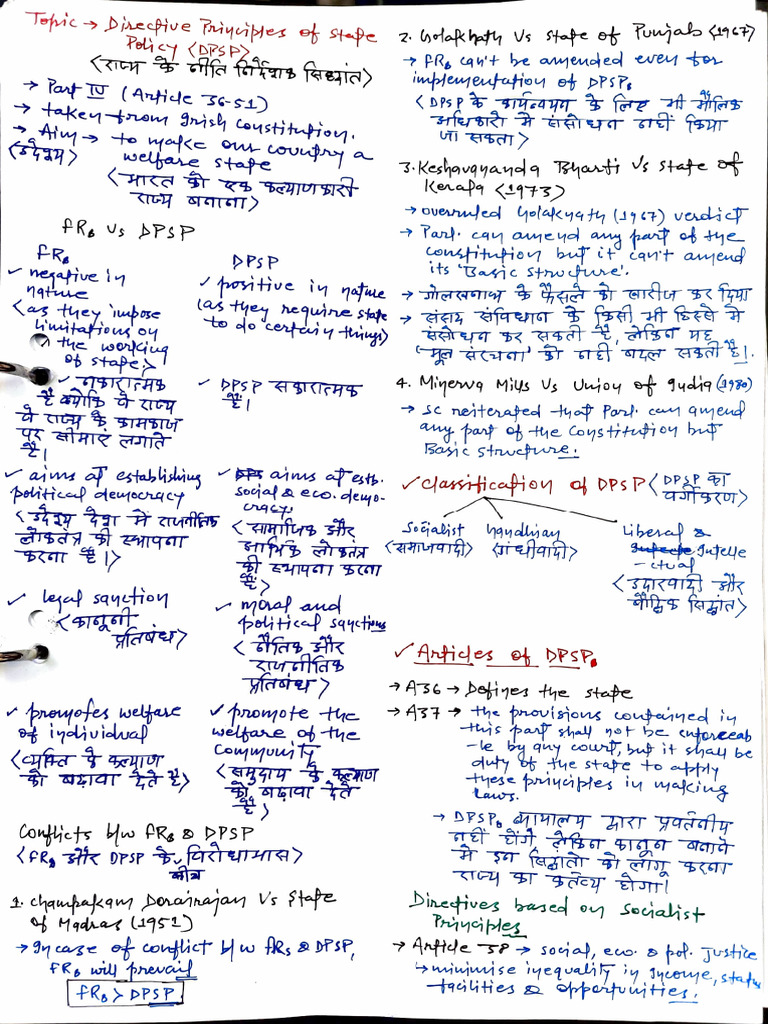 Topic → Directive Principles of State
Policy <DPSP>
<राज्य के नीति निर्देशक सिद्धांत>
→ Part IV (Article 36-51)
→ taken from Irish Constitution.
→ Aim → to make our country a
<उद्देश्य> welfare state
<भारत को एक कल्याणकारी
राज्य बनाना>
FRs Vs DPSP
FRs
✓ negative in
nature
<as they impose
limitations on
the working
of state>
✓ नकारात्मक
है क्योकि ये राज्य
पे राज्य के कामकाज
पर सीमाए लगाते
है।
DPSP
✓ positive in nature
(as they require state
to do certain things)
✓ DPSP सकारात्मक
है।
✓ aims at establishing
political democracy
<उद्देश्य देश मे राजनीतिक
लोकतंत्र की स्थापना
करना है।>
✓ aims at estb.
social & eco. demo-
cracy.
<सामाजिक और
आर्थिक लोकतंत्र
की स्थापना करना
है>
✓ legal sanction
<कानूनी
प्रतिबंध>
✓ moral and
political sanctions
<नैतिक और
राजनीतिक
प्रतिबंध>
✓ promotes welfare
of individual
<व्यक्ति के कल्याण
को बढ़ावा देते है>
✓ promote the
welfare of the
community
<समुदाय के कल्याण
को बढ़ावा देते
है>
Conflicts b/w FRs & DPSP
<FRs और DPSP के बीच विरोधाभास>
1. Champakam Dorairajan Vs State
of Madras (1951)
→ In case of conflict b/w FRs & DPSP,
FRs will prevail
FRs > DPSP
2. Golaknath Vs State of Punjab <1967>
→ FRs can't be amended even for
implementation of DPSPs
<DPSP के कार्यान्वयन के लिए भी मौलिक
अधिकारो मे संसोधन नहीं किया
जा सकता>
3. Keshavananda Bharti Vs State of
Kerala <1973>
→ overruled Golaknath (1967) verdict
→ Parl. can amend any part of the
constitution but it can't amend
its 'Basic Structure'.
→ गोलखनाथ के फैसले को खारीज कर दिया
→ संसद संविधान के किसी भी हिस्से मे
संसोधन कर सकती है, लेकिन यह
'मूल संरचना' को नही बदल सकती है।
4. Minerva Mills Vs Union of India (1980)
→ SC reiterated that Parl. can amend
any part of the Constitution but
Basic Structure.
✓ Classification of DPSP <DPSP का
वर्गीकरण>
Socialist
<समाजवादी>
Gandhian
<गांधीवादी>
Liberal &
Intelle
-ctual
<उदारवादी और
बौद्धिक सिद्धांत>
✓ Articles of DPSPs
→ A36 → Defines the state
→ A37 → the provisions contained in
this part shall not be enforceab
-le by any court, but it shall be
duty of the state to apply
these principles in making
laws.
→ DPSPs न्यायालय द्वारा प्रवर्तनीय
नहीं होंगे लेकिन कानून बनाने
मे इन सिद्धांतो को लागू करना
राज्य का कर्तव्य होगा।
Directives based on Socialist
Principles
→ Article 38 → social, eco. & pol. justice
→ minimise inequality in income, status
facilities & opportunities.